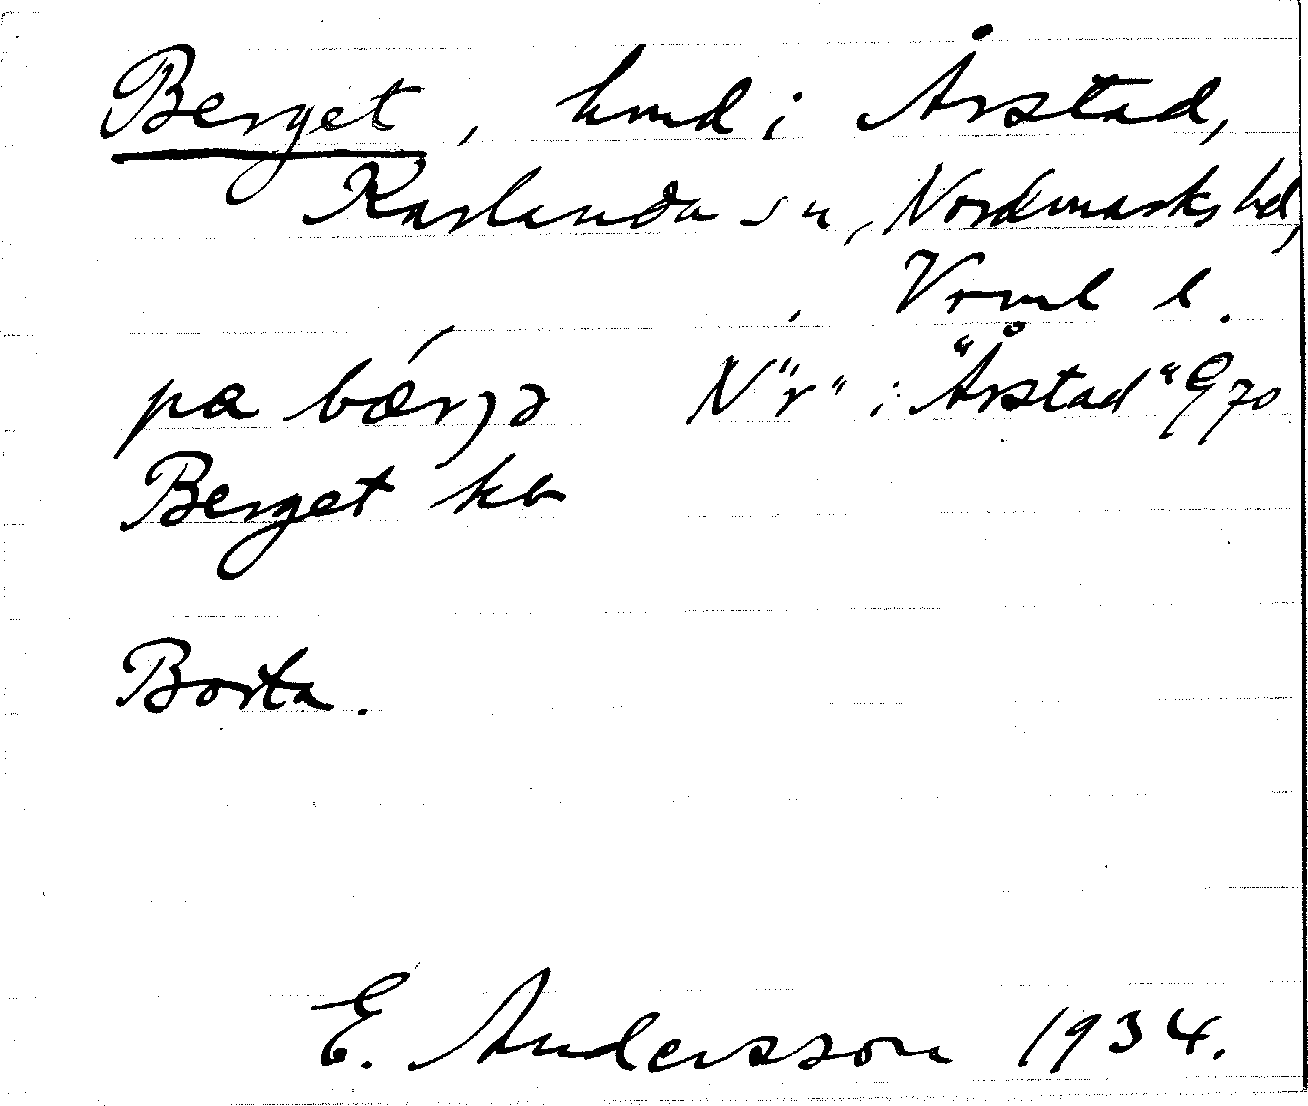 Berget, hmd i Årstad,
Karlanda sn, Nordmarks hd,
Vrml l.
pa bærjə N "r" i "Årstad" G 70
Berget ka
Borta.
E. Andersson 1934.